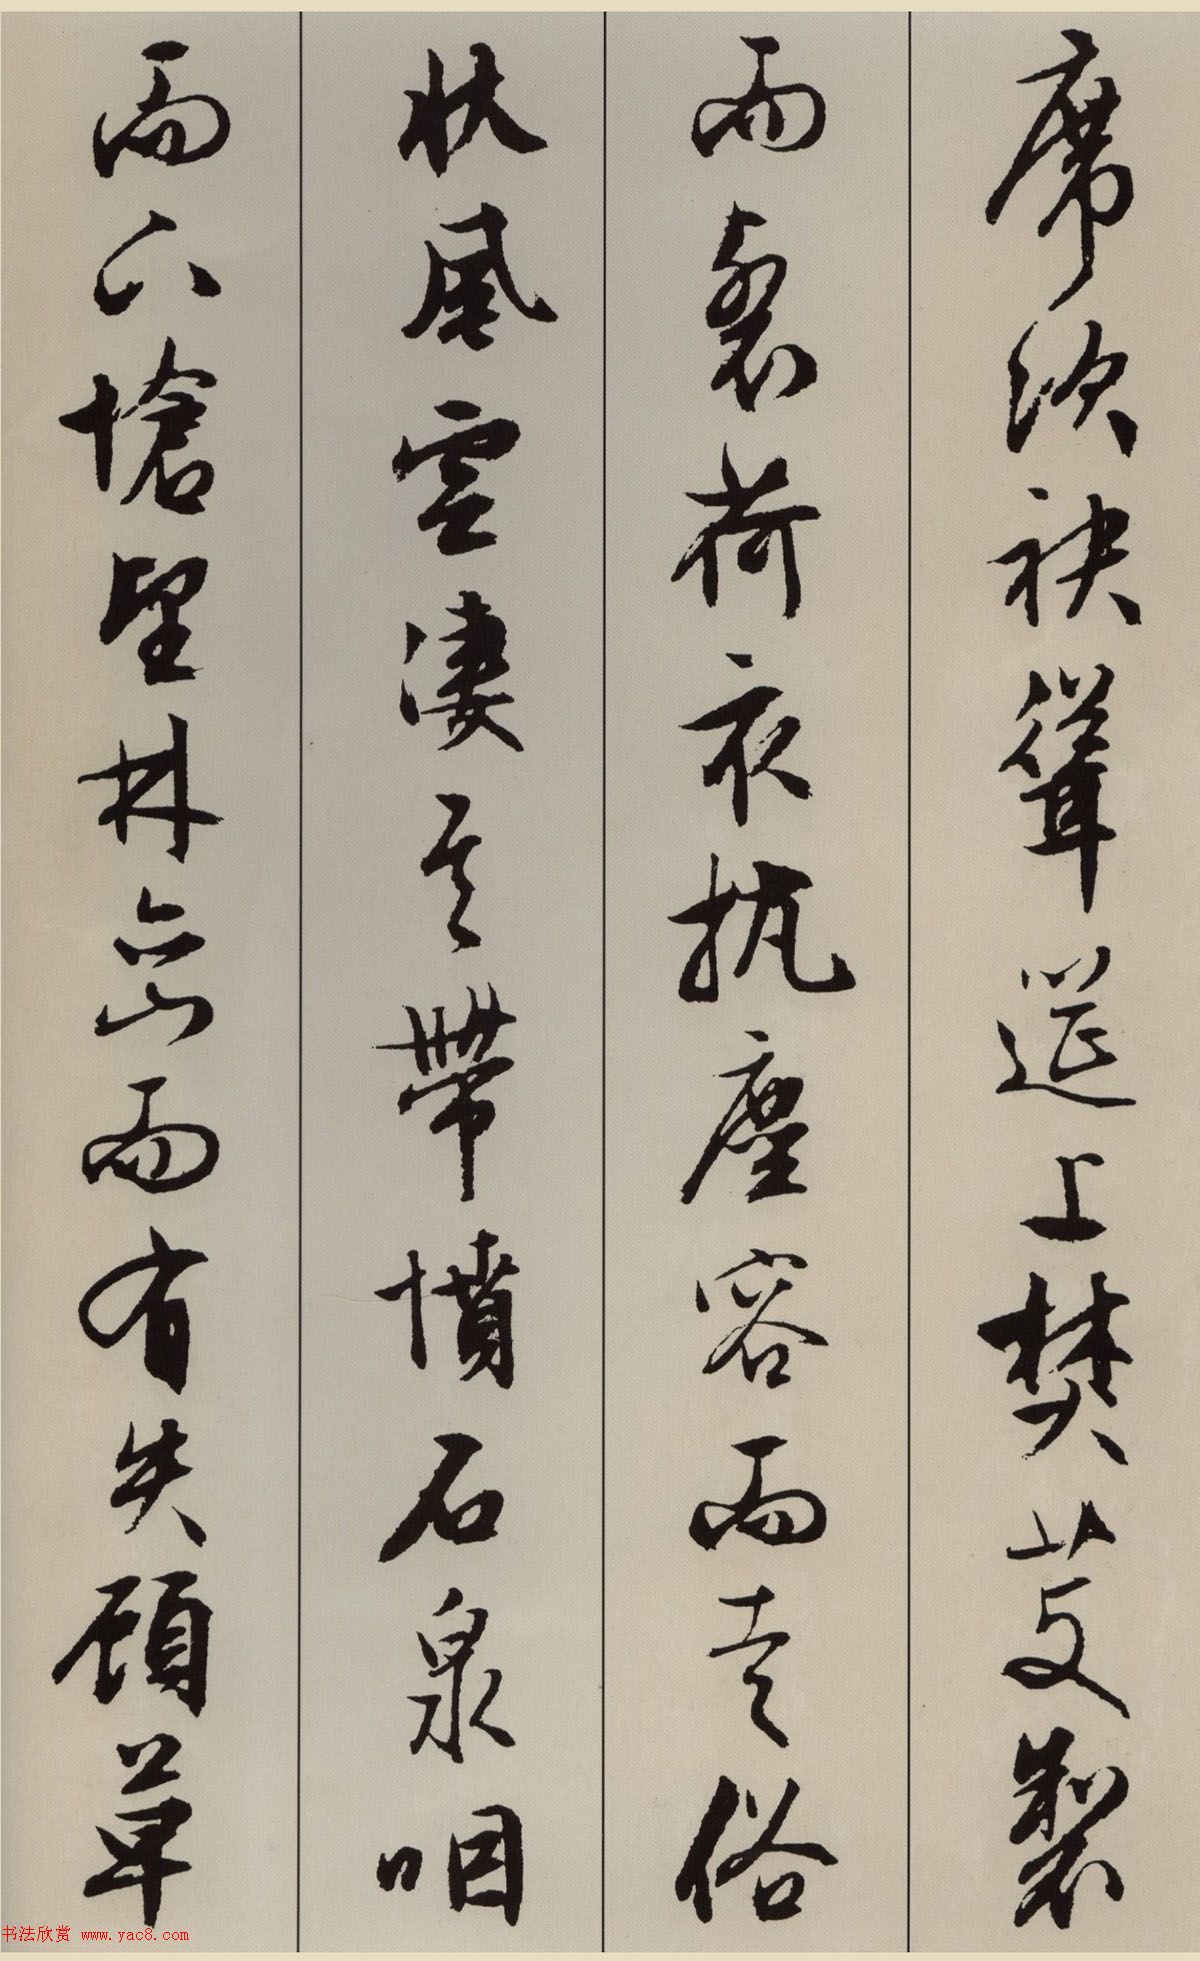 席次袂聳筵上焚芰製
而裂荷衣抗塵容而走俗
狀風雲淒其帶憤石泉咽
而下愴望林巒而有失顧草
书法欣赏 www.yac8.com